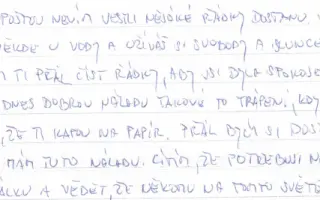 POŠTOU NEVÍM JESTLI NĚJAKÉ ŘÁDKY DOSTANU.
NĚKDE U VODY A UŽÍVÁŠ SI SVOBODY A SLUNCE
TI PŘÁL ČÍST ŘÁDKY, ABY JSI BYLA SPOKOJE
DNES DOBROU NÁLADU TAKOVÉ TO TRÁPENÍ, KDY
ŽE TI KAPOU NA PAPÍR. PŘÁL BYCH SI DOST
MÁM TUTO NÁLADU. CÍTÍM, ŽE POTŘEBUJI NA
ÁLKU A VĚDĚT, ŽE NĚKOMU NA TOMTO SVĚTĚ